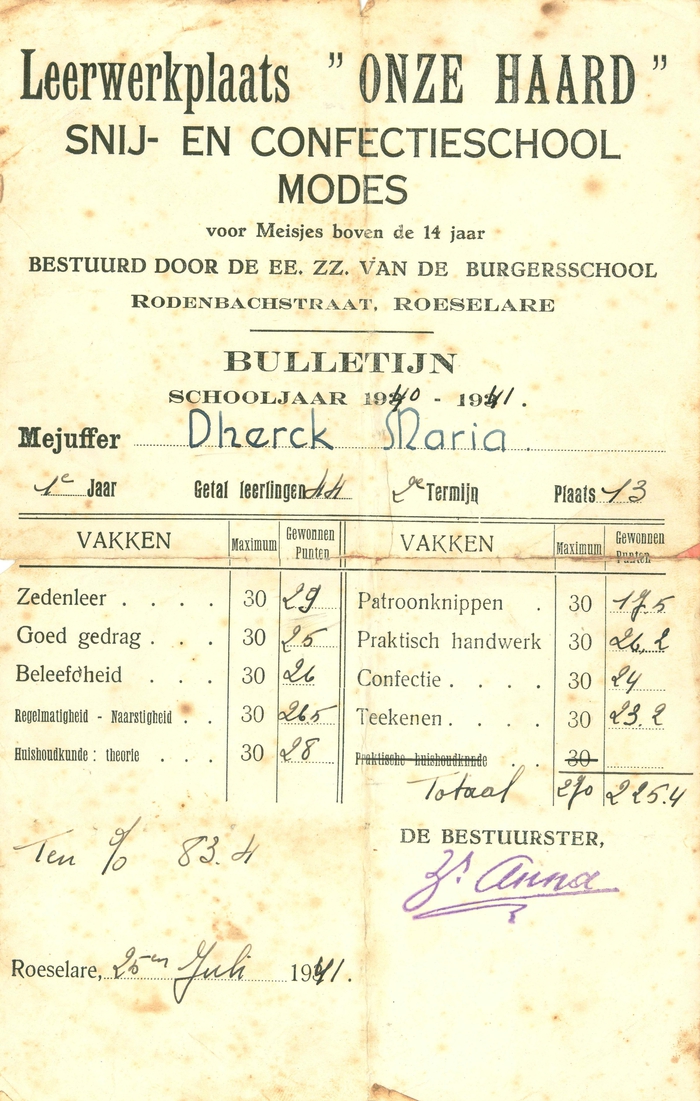 Leerwerkplaats " ONZE HAARD "
SNIJ- EN CONFECTIESCHOOL
MODES
voor Meisjes boven de 14 jaar
BESTUURD DOOR DE EE. ZZ. VAN DE BURGERSSCHOOL
RODENBACHSTRAAT, ROESELARE
BULLETIJN
SCHOOLJAAR 1940 - 1941.
Mejuffer Dherck Maria.
1e Jaar Getal leerlingen 44 2e Termijn Plaats 13
VAKKEN Maximum Gewonnen Punten VAKKEN Maximum Gewonnen Punten
Zedenleer . . . . 30 29 Patroonknippen . 30 17.5
Goed gedrag . . . 30 25 Praktisch handwerk 30 26.2
Beleefdheid . . . 30 26 Confectie . . . . 30 24
Regelmatigheid - Naarstigheid . . 30 26.5 Teekenen . . . . 30 23.2
Huishoudkunde : theorie . . . 30 28 Praktische huishoudkunde . . 30
Totaal 270 225.4
Ten % 83.4
DE BESTUURSTER,
Zr. Anna
Roeselare, 25en Juli 1941.